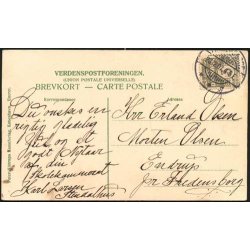 VERDENSPOSTFORENINGEN.
(UNION POSTALE UNIVERSELLE)
BREVKORT — CARTE POSTALE
Korrespondance
Adresse
Du ønskes en
rigtig glædelig
Jul og et
godt Nytaar
af din
Skolekammerat
Karl Larsen
Herr Erland Olsen
Morten Olsen
Endrup
pr Fredensborg